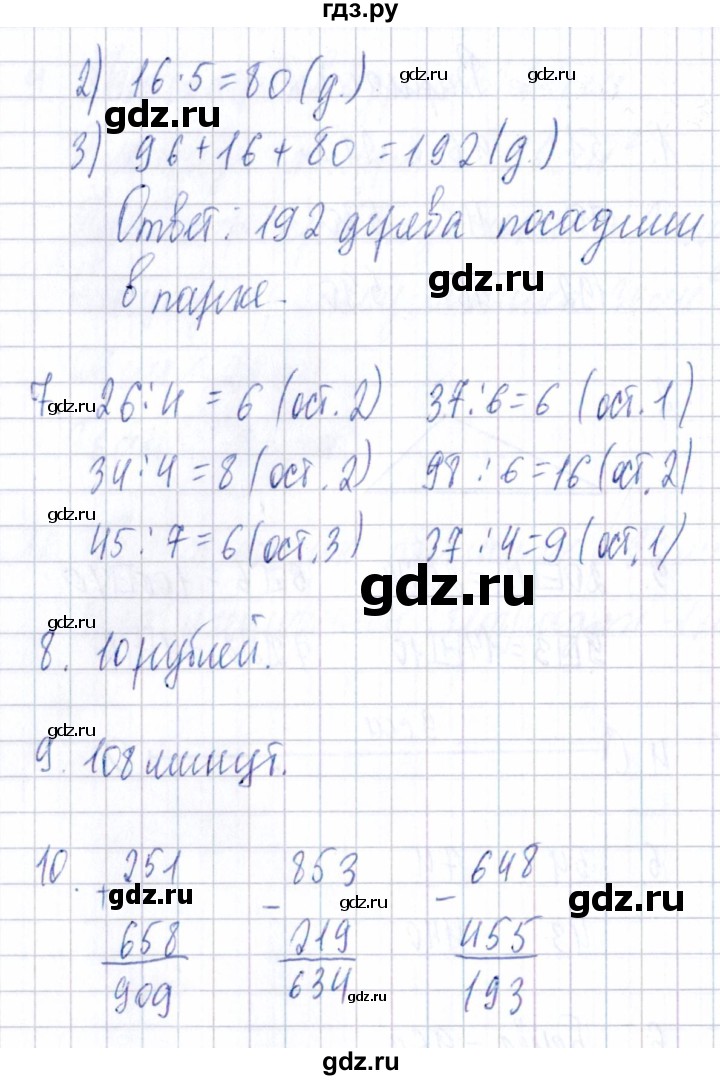 гдз.ру
2) 16·5=80(д.)
gdz.ru gdz.ru
gdz.ru
3) 96+16+80=192(д.)
Ответ: 192 дерева посадили
gdz.ru
в парке.
7 26:4=6(ост.2) 37:6=6(ост.1)
gdz.ru
34:4=8(ост.2) 98:6=16(ост.2)
gdz.ru
45:7=6(ост.3) 37:4=9(ост.1)
gdz.ru
gdz.ru
8. 10 рублей.
gdz.ru
9. 108 минут.
10. +251 -853 -648
gdz.ru gdz.ru gdz.ru
658 219 455
909 634 193
gdz.ru
gdz.ru